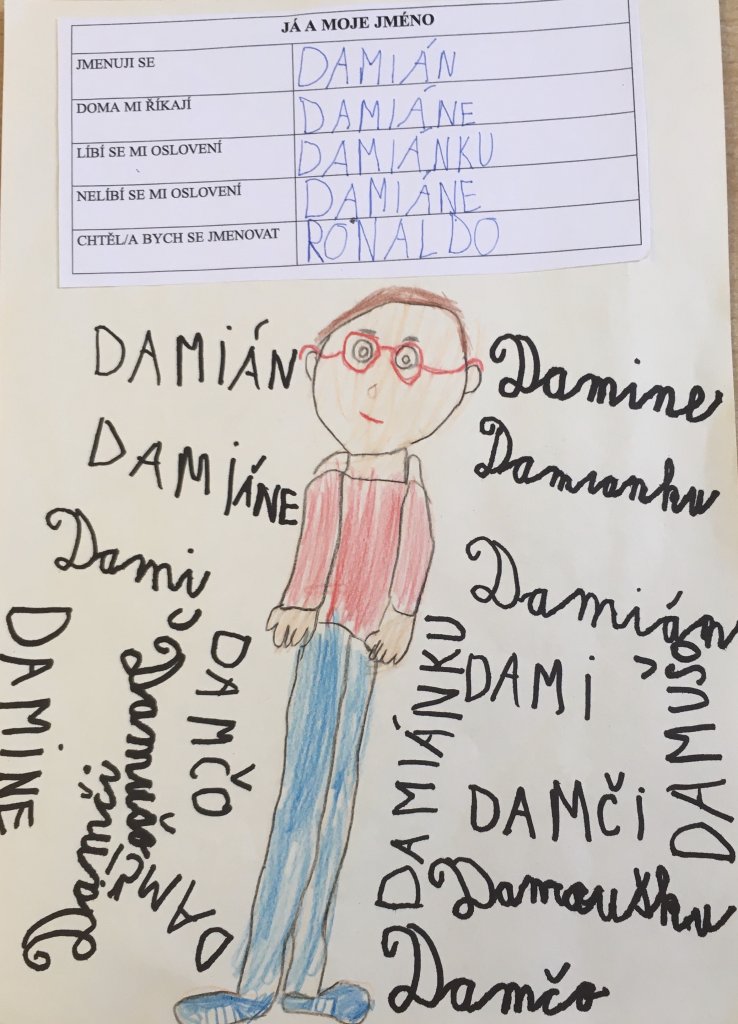 JÁ A MOJE JMÉNO
JMENUJI SE DAMIÁN
DOMA MI ŘÍKAJÍ DAMIÁNE
LÍBÍ SE MI OSLOVENÍ DAMIÁNKU
NELÍBÍ SE MI OSLOVENÍ DAMIÁNE
CHTĚL/A BYCH SE JMENOVAT RONALDO
DAMIÁN
Damine
DAMIÁNE
Damianku
Dami
Damián
DAMINE
DAMČO
DAMIÁNKU
DAMI
DAMUŠO
Damčí
DAMČÍ
DAMČi
Damoušku
Damčo